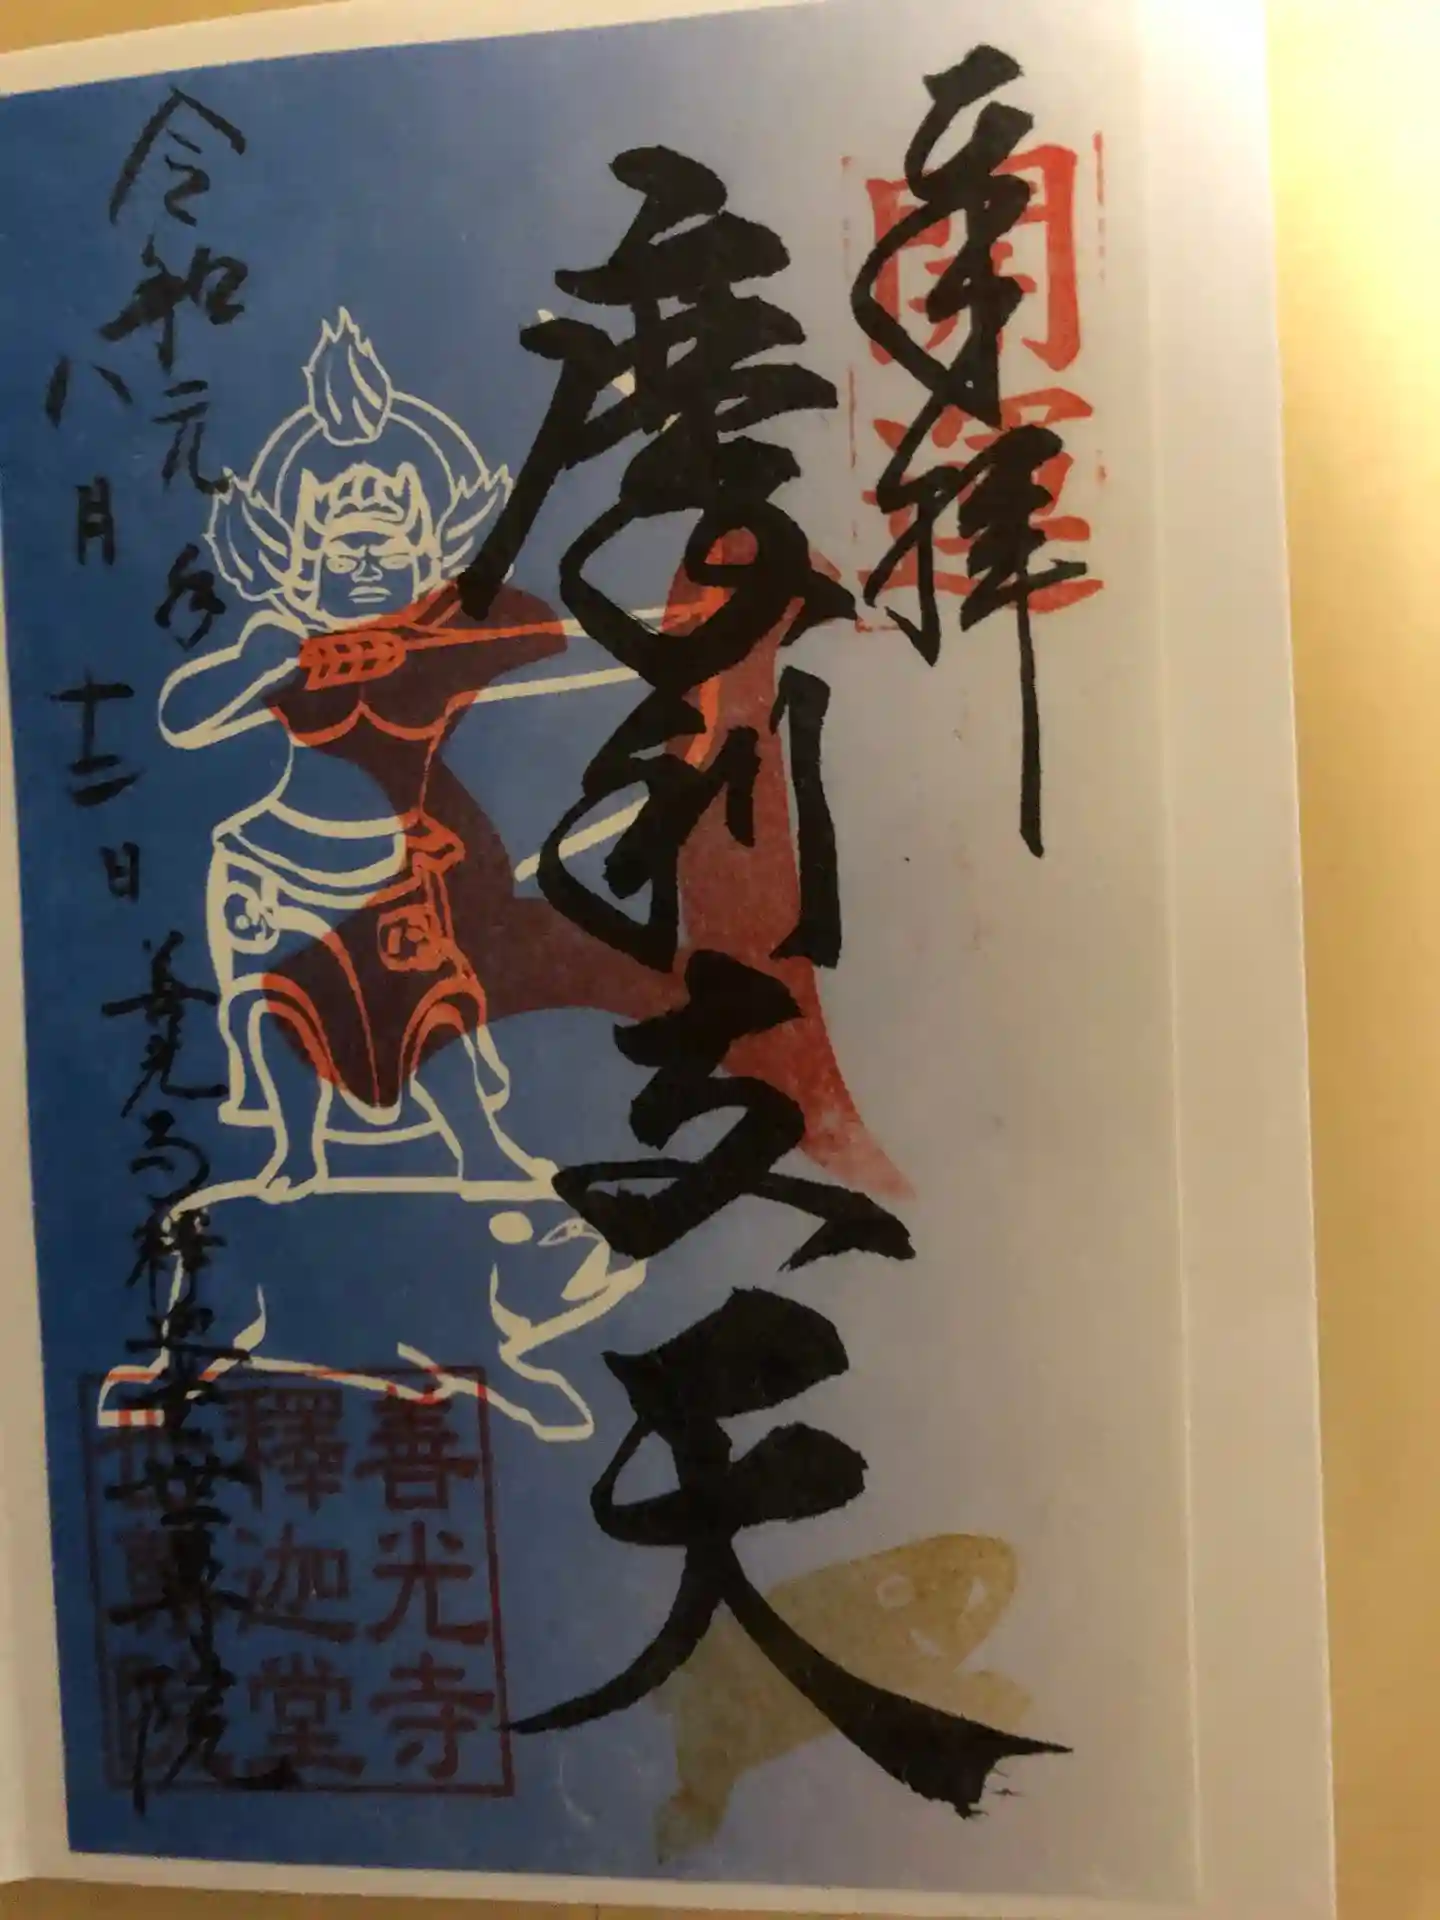 奉拝
開運
摩利支天
令和元年
八月十二日
善光寺釋迦堂世尊院
善光寺
釋迦堂
世尊院